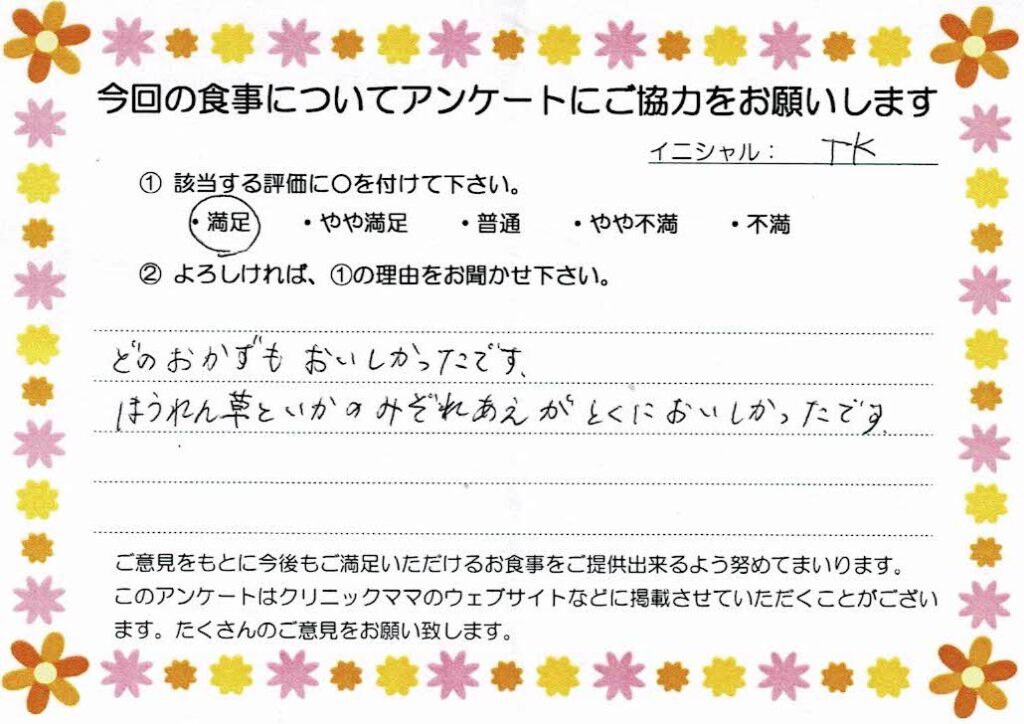 今回の食事についてアンケートにご協力をお願いします
イニシャル： TK
① 該当する評価に〇を付けて下さい。
・満足 ・やや満足 ・普通 ・やや不満 ・不満
② よろしければ、①の理由をお聞かせ下さい。
どのおかずも おいしかったです、
ほうれん草といかのみぞれあえが とくにおいしかったです。
ご意見をもとに今後もご満足いただけるお食事をご提供出来るよう努めてまいります。
このアンケートはクリニックママのウェブサイトなどに掲載させていただくことがござい
ます。たくさんのご意見をお願い致します。